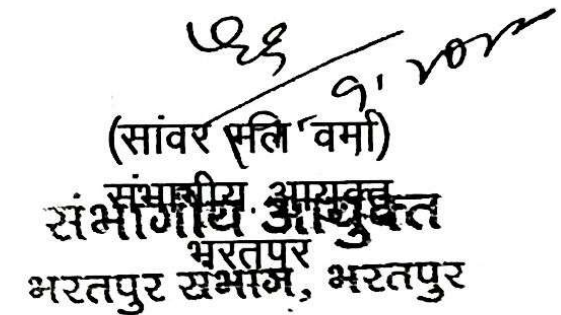 (सांवर मल वर्मा)
संभागीय आयुक्त
संभागीय आयुक्त
भरतपुर
भरतपुर संभाग, भरतपुर